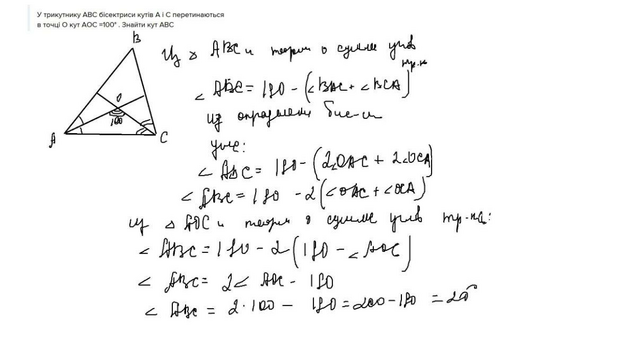 У трикутнику ABC бісектриси кутів А і С перетинаються
в точці О кут АОС =100° . Знайти кут АВС
B
O
100
A
C
Из △ ABC и теорем о сумме углов
тр-ка
∠ ABC = 180 - (∠BAC + ∠BCA)
из определения бис-и
угле:
∠ ABC = 180 - (2∠OAC + 2∠OCA)
∠ABC = 180 - 2(∠OAC + ∠OCA)
из △ AOC и теорем о сумме углов тр-ка:
∠ ABC = 180 - 2(180 - ∠AOC)
∠ ABC = 2∠ AOC - 180
∠ ABC = 2·100 - 180 = 200 - 180 = 20°